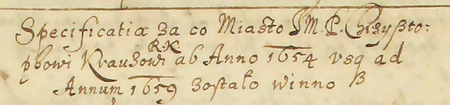 Specificatia za co Miasto JM. P. Chrzyszto:
phowi Krauzowi RK ab Anno 1654 usq ad
Annum 1659 zostało winno